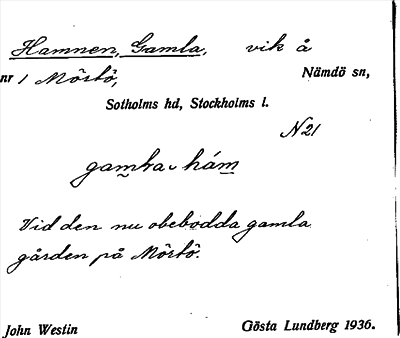 Hamnen, Gamla, vik å
nr 1 Mörtö, Nämdö sn,
Sotholms hd, Stockholms l.
N21
gamla hám
Vid den nu obebodda gamla
gården på Mörtö.
John Westin Gösta Lundberg 1936.